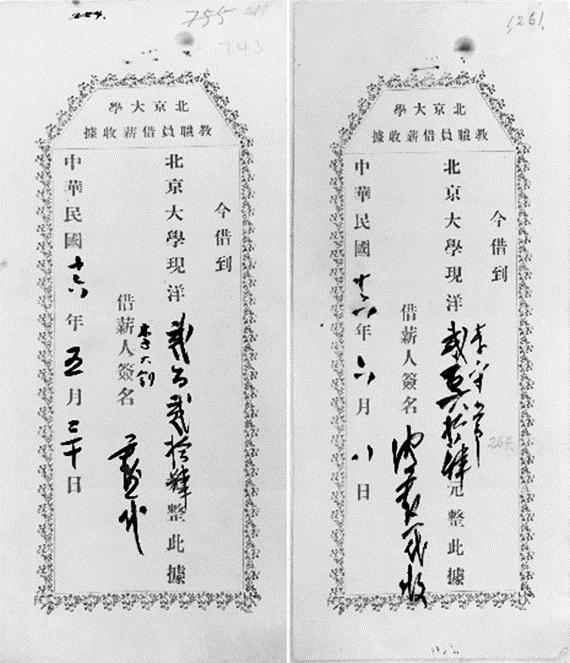 755
743
北京大學
教職員借薪收據
今借到
北京大學現洋貳百貳拾肆整此據
借薪人簽名
李大釗
代
中華民國十六年五月三十日
1261
北京大學
教職員借薪收據
今借到
李守常
北京大學現洋貳百六拾肆元整此據
借薪人簽名
代收
中華民國年六月八日